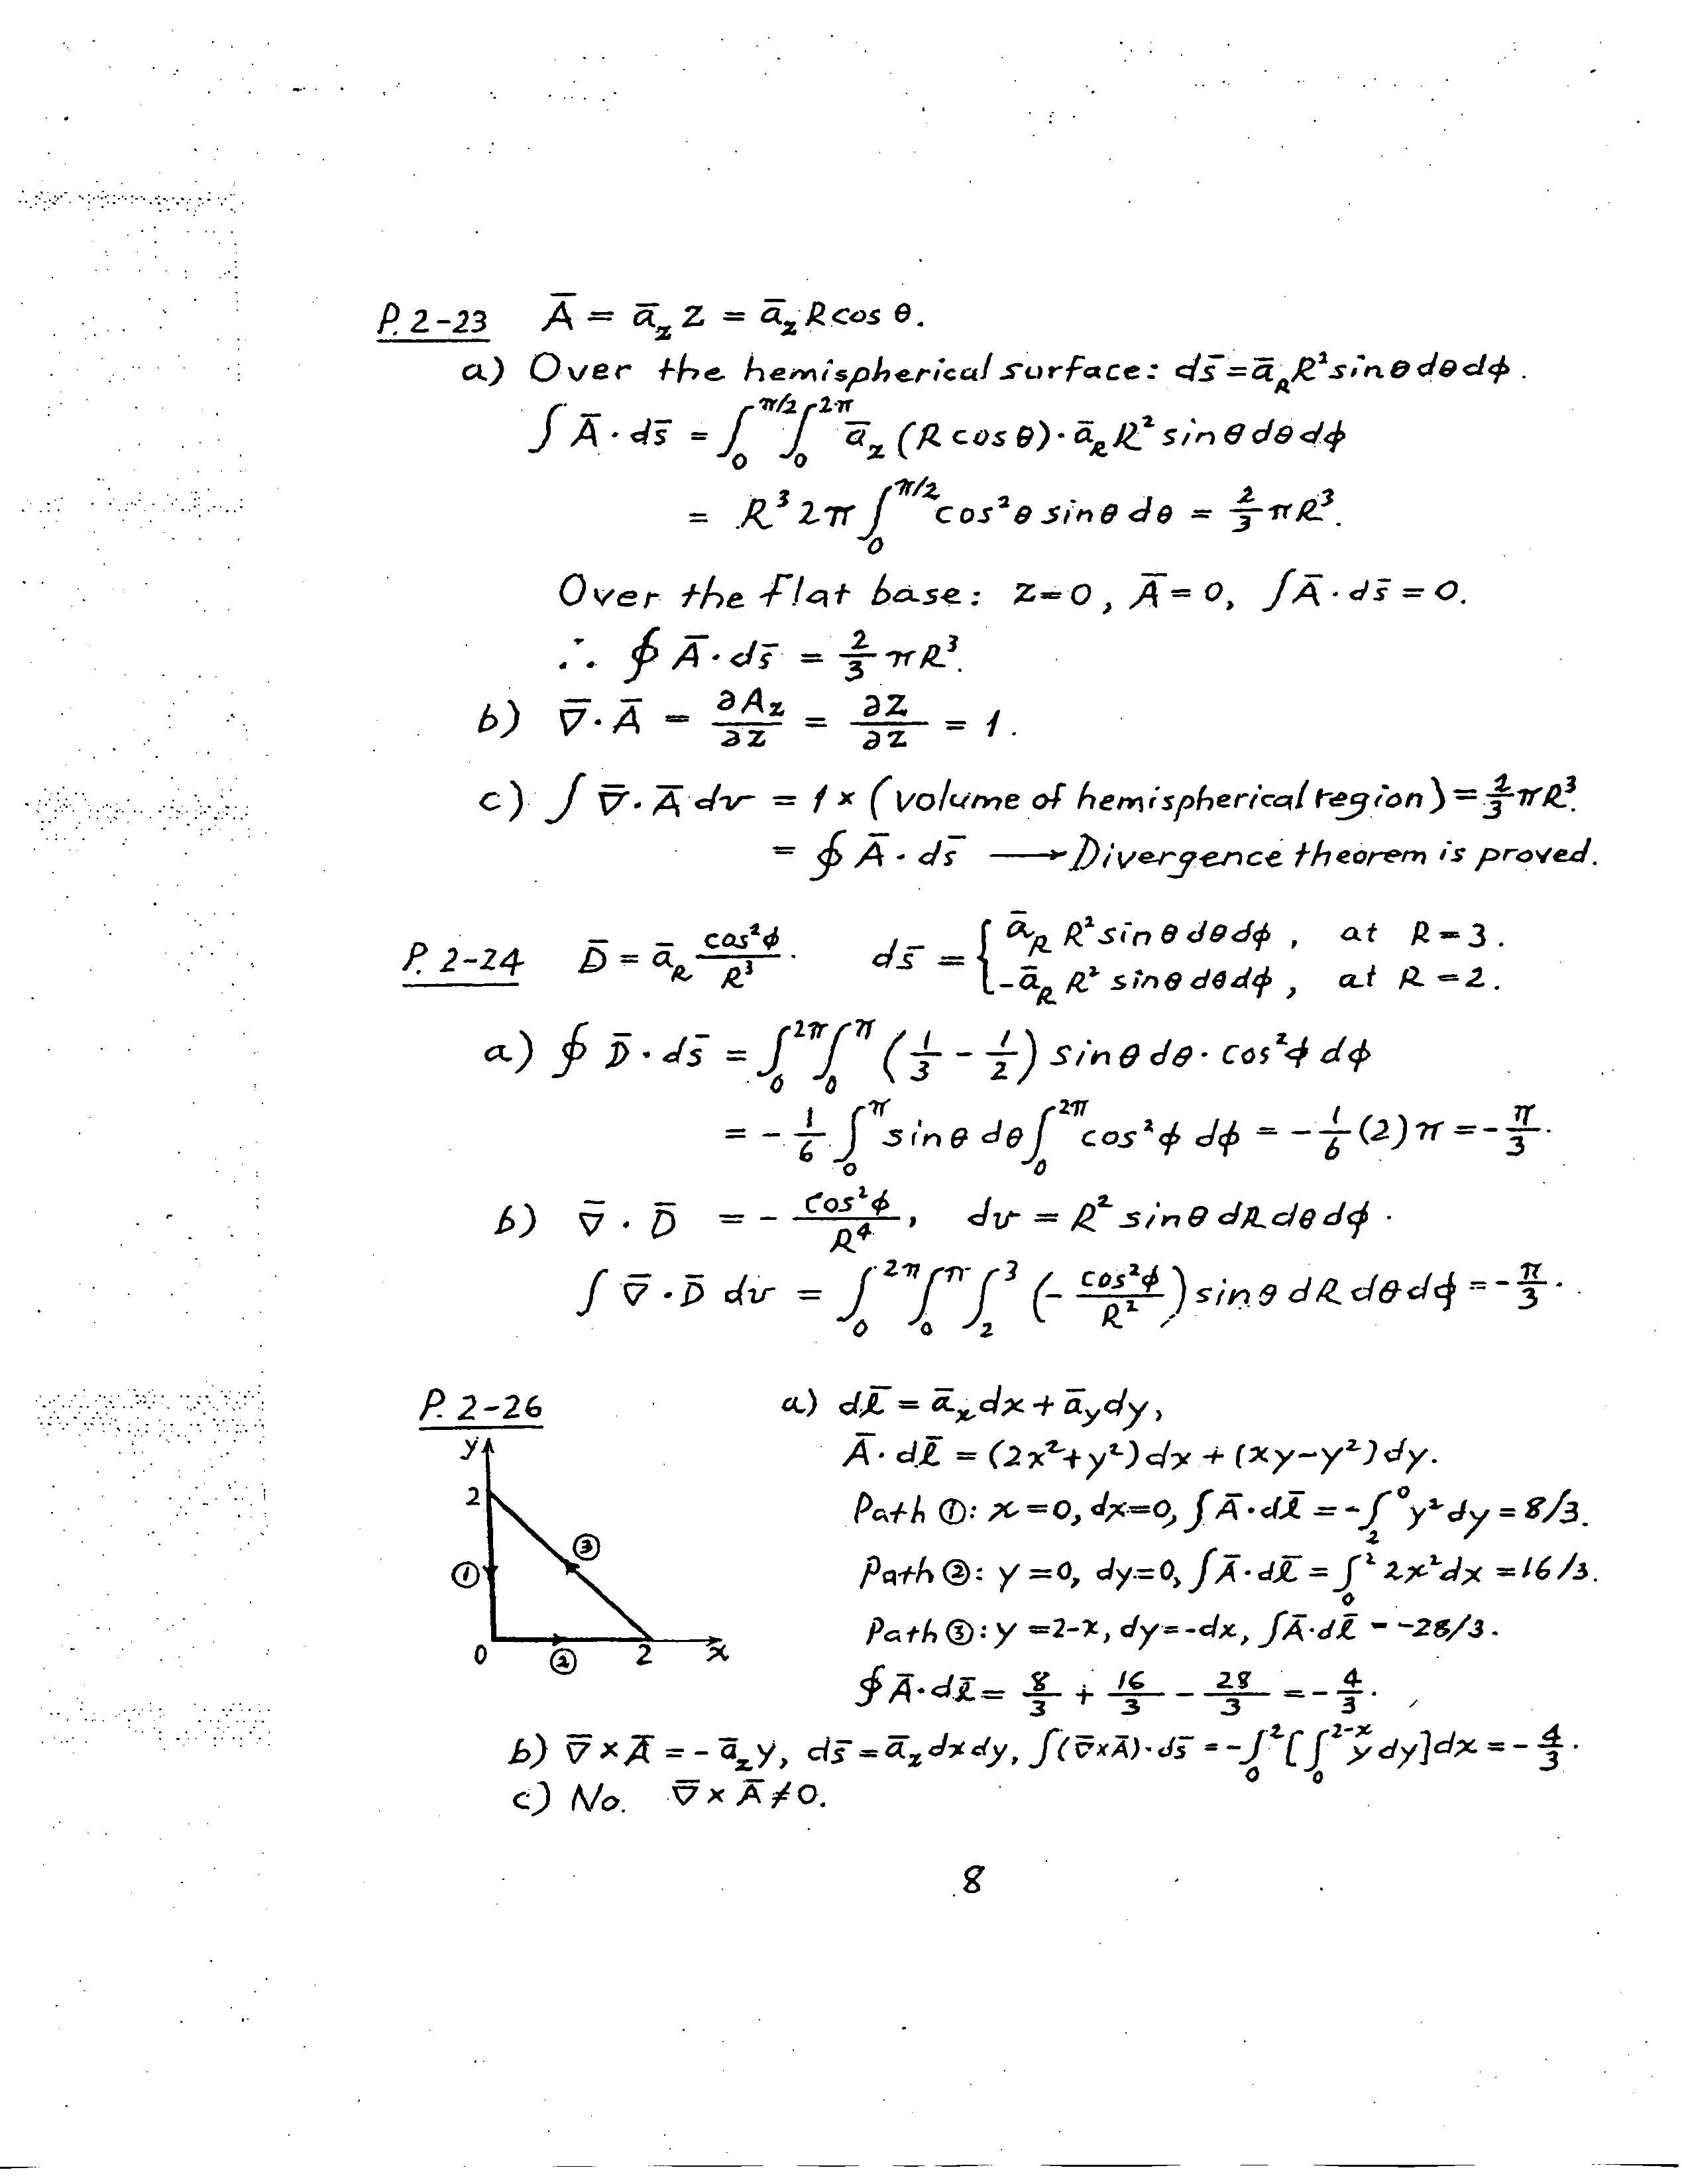 P. 2-23 Ā = ā_z z = ā_z R cos θ.
a) Over the hemispherical surface: ds̄ = ā_R R² sin θ dθ dφ.
∫ Ā · ds̄ = ∫₀^{π/2} ∫₀^{2π} ā_z (R cos θ) · ā_R R² sin θ dθ dφ
= R³ 2π ∫₀^{π/2} cos² θ sin θ dθ = 2/3 πR³.
Over the flat base: z = 0, Ā = 0, ∫ Ā · ds̄ = 0.
∴ ∮ Ā · ds̄ = 2/3 πR³.
b) ∇̄ · Ā = ∂A_z/∂z = ∂z/∂z = 1.
c) ∫ ∇̄ · Ā dv = 1 × (volume of hemispherical region) = 2/3 πR³.
= ∮ Ā · ds̄ ⟶ Divergence theorem is proved.
P. 2-24 D̄ = ā_R cos²φ/R³. ds̄ = { ā_R R² sin θ dθ dφ, at R = 3.
-ā_R R² sin θ dθ dφ, at R = 2.
a) ∮ D̄ · ds̄ = ∫₀^{2π} ∫₀^{π} (1/3 - 1/2) sin θ dθ · cos² φ dφ
= -1/6 ∫₀^{π} sin θ dθ ∫₀^{2π} cos² φ dφ = -1/6 (2) π = -π/3.
b) ∇̄ · D̄ = -cos²φ/R⁴, dv = R² sin θ dR dθ dφ.
∫ ∇̄ · D̄ dv = ∫₀^{2π} ∫₀^{π} ∫₂³ (-cos²φ/R²) sin θ dR dθ dφ = -π/3.
P. 2-26
y
2
①
③
0
②
2
x
a) dℓ̄ = ā_x dx + ā_y dy,
Ā · dℓ̄ = (2x² + y²) dx + (xy - y²) dy.
Path ①: x = 0, dx = 0, ∫ Ā · dℓ̄ = -∫₂⁰ y² dy = 8/3.
Path ②: y = 0, dy = 0, ∫ Ā · dℓ̄ = ∫₀² 2x² dx = 16/3.
Path ③: y = 2-x, dy = -dx, ∫ Ā · dℓ̄ = -28/3.
∮ Ā · dℓ̄ = 8/3 + 16/3 - 28/3 = -4/3.
b) ∇̄ × Ā = -ā_z y, ds̄ = ā_z dx dy, ∫ (∇̄ × Ā) · ds̄ = -∫₀² [∫₀^{2-x} y dy] dx = -4/3.
c) No. ∇̄ × Ā ≠ 0.
8